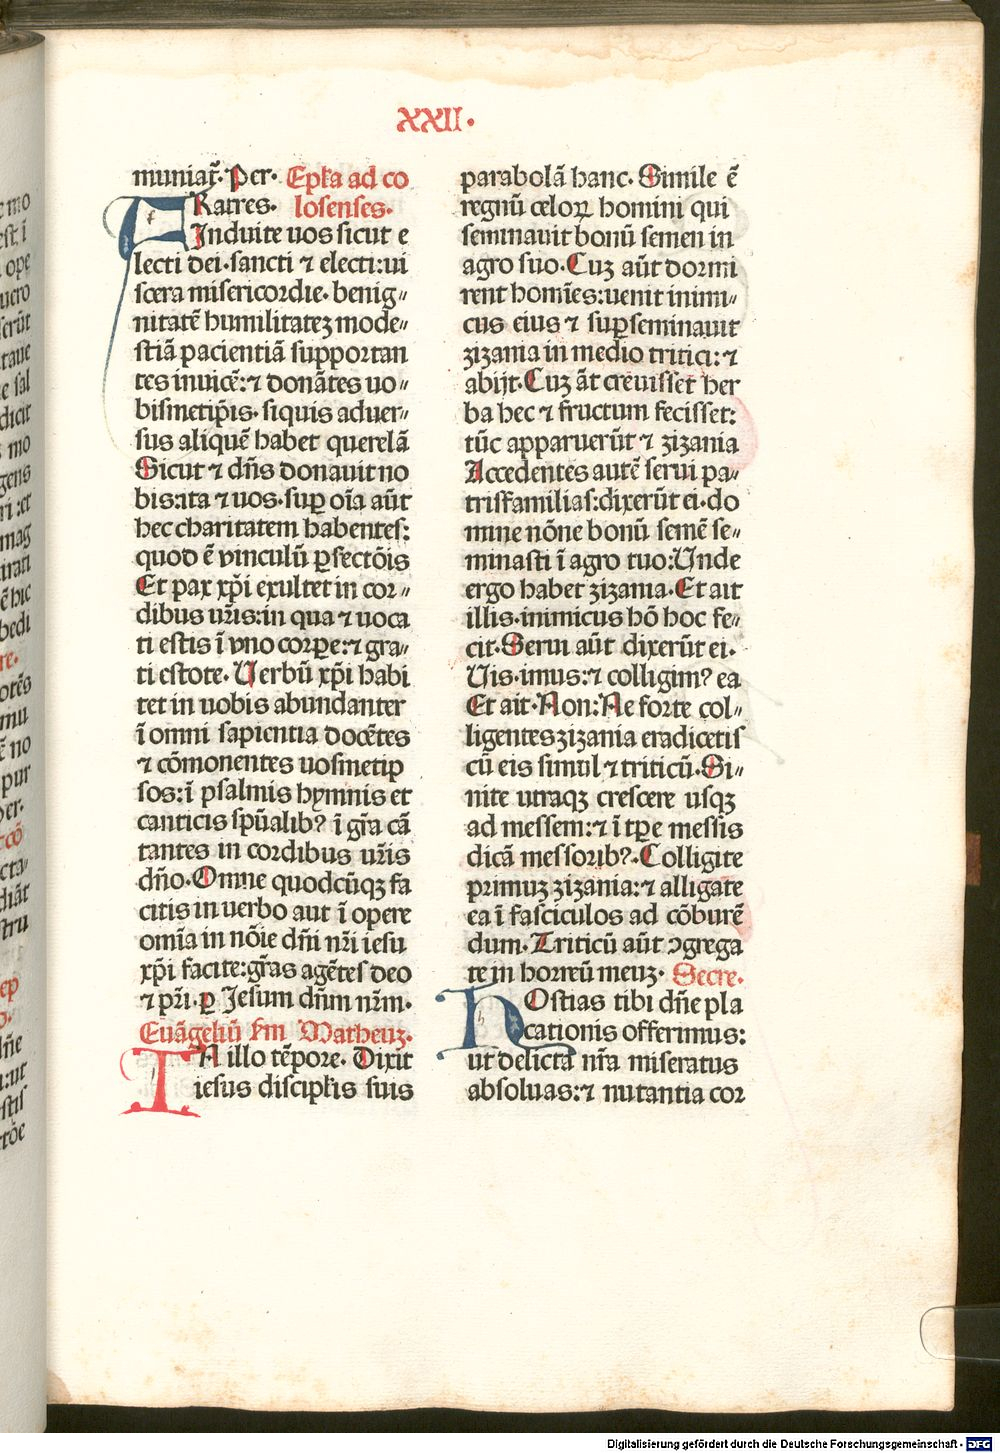 XXII·
muniat᷑·Per· Epl̃a ad co
FRatres· losenses·
Induite uos sicut e
lecti dei·sancti ⁊ electi:ui
scera misericordie·benig⸗
nitatẽ humilitateꝫ mode⸗
stiã pacientiã supportan
tes inuicẽ:⁊ donãtes uo⸗
bismetip̃is·siquis aduer⸗
sus aliquẽ habet querelã
Sicut ⁊ dñs donauit no
bis:ita ⁊ uos·suꝑ oĩa aũt
hec charitatem habentes:
quod ẽ vinculũ ꝑfectõis
Et pax xp̃i exultet in cor⸗
dibus ur̃is:in qua ⁊ uoca
ti estis ĩ vno corꝑe:⁊ gra⸗
ti estote·Verbũ xp̃i habi
tet in uobis abundanter
ĩ omni sapientia docẽtes
⁊ cõmonentes uosmetip
sos:ĩ psalmis hymnis et
canticis sp̃ualibꝰ ĩ gr̃a cã
tantes in cordibus ur̃is
dño·Omne quodcũqꝫ fa
citis in uerbo aut ĩ opere
omĩa in nõie dñi nr̃i iesu
xp̃i facite:gr̃as agẽtes deo
⁊ pr̃i·ꝑ Jesum dñm nr̃m·
Euãgeliũ ẜm Matheuꝫ·
IN illo tẽpore·Dixit
iesus discipl̃is suis
parabolã hanc·Simile ẽ
regnũ celoꝝ homini qui
seminauit bonũ semen in
agro suo·Cuꝫ aũt dormi
rent homĩes:uenit inimi⸗
cus eius ⁊ suꝑseminauit
zizania in medio tritici:⁊
abijt·Cuꝫ aũt creuisset her
ba hec ⁊ fructum fecisset:
tũc apparuerũt ⁊ zizania
Accedentes autẽ serui pa⸗
trisfamilias:dixerũt ei·do
mine nõne bonũ semẽ se⸗
minasti ĩ agro tuo:Unde
ergo habet zizania·Et ait
illis·inimicus hõ hoc fe⸗
cit·Serui aũt dixerũt ei·
Uis·imus:⁊ colligimꝰ ea
Et ait·Non:Ne forte col⸗
ligentes zizania eradicetis
cũ eis simul ⁊ triticũ·Si⸗
nite utraqꝫ crescere usqꝫ
ad messem:⁊ ĩ tꝑe messis
dicã messoribꝰ·Colligite
primuꝫ zizania:⁊ alligate
ea ĩ fasciculos ad cõburẽ
dum·Triticũ aũt ꝯgrega
te in horreũ meuꝫ· Secre·
HOstias tibi dñe pla
cationis offerimus:
ut delicta nr̃a miseratus
absoluas:⁊ nutantia cor
Digitalisierung gefördert durch die Deutsche Forschungsgemeinschaft - DFG